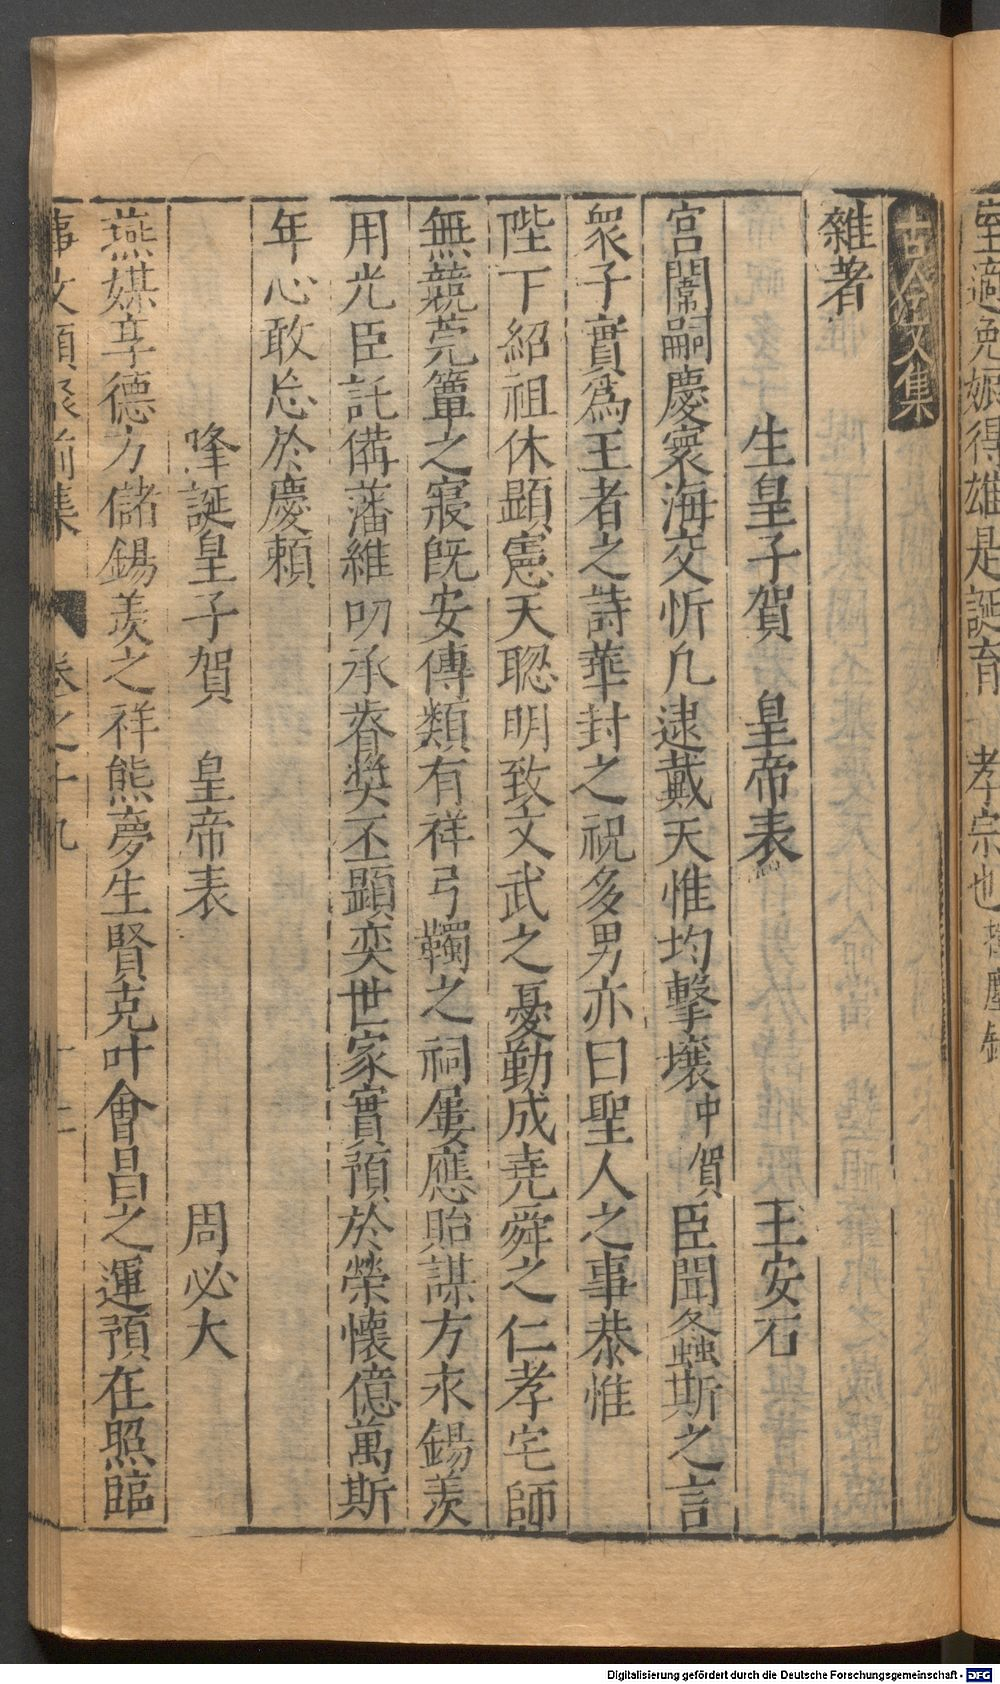 室適免娠得雄是誕育 孝宗也
古今文集
雜著
生皇子賀 皇帝表 王安石
宮闈嗣慶寰海交忻凢逮戴天惟均擊壤中賀臣聞螽斯之言
衆子實爲王者之詩華封之祝多男亦曰聖人之事恭惟
陛下紹祖休顯憲天聦明致文武之憂勤成堯舜之仁孝宅師
無競莞簟之寢旣安傳類有祥弓韣之祠屢應貽謀方永錫羨
用光臣託備藩維叨承眷奬丕顯奕世家實預於榮懷億萬斯
年心敢忘於慶賴
降誕皇子賀 皇帝表 周必大
燕媒享德方儲錫羨之祥熊夢生賢克叶會昌之運預在照臨
事文類聚前集 卷之十九 十二
Digitalisierung gefördert durch die Deutsche Forschungsgemeinschaft - DFG